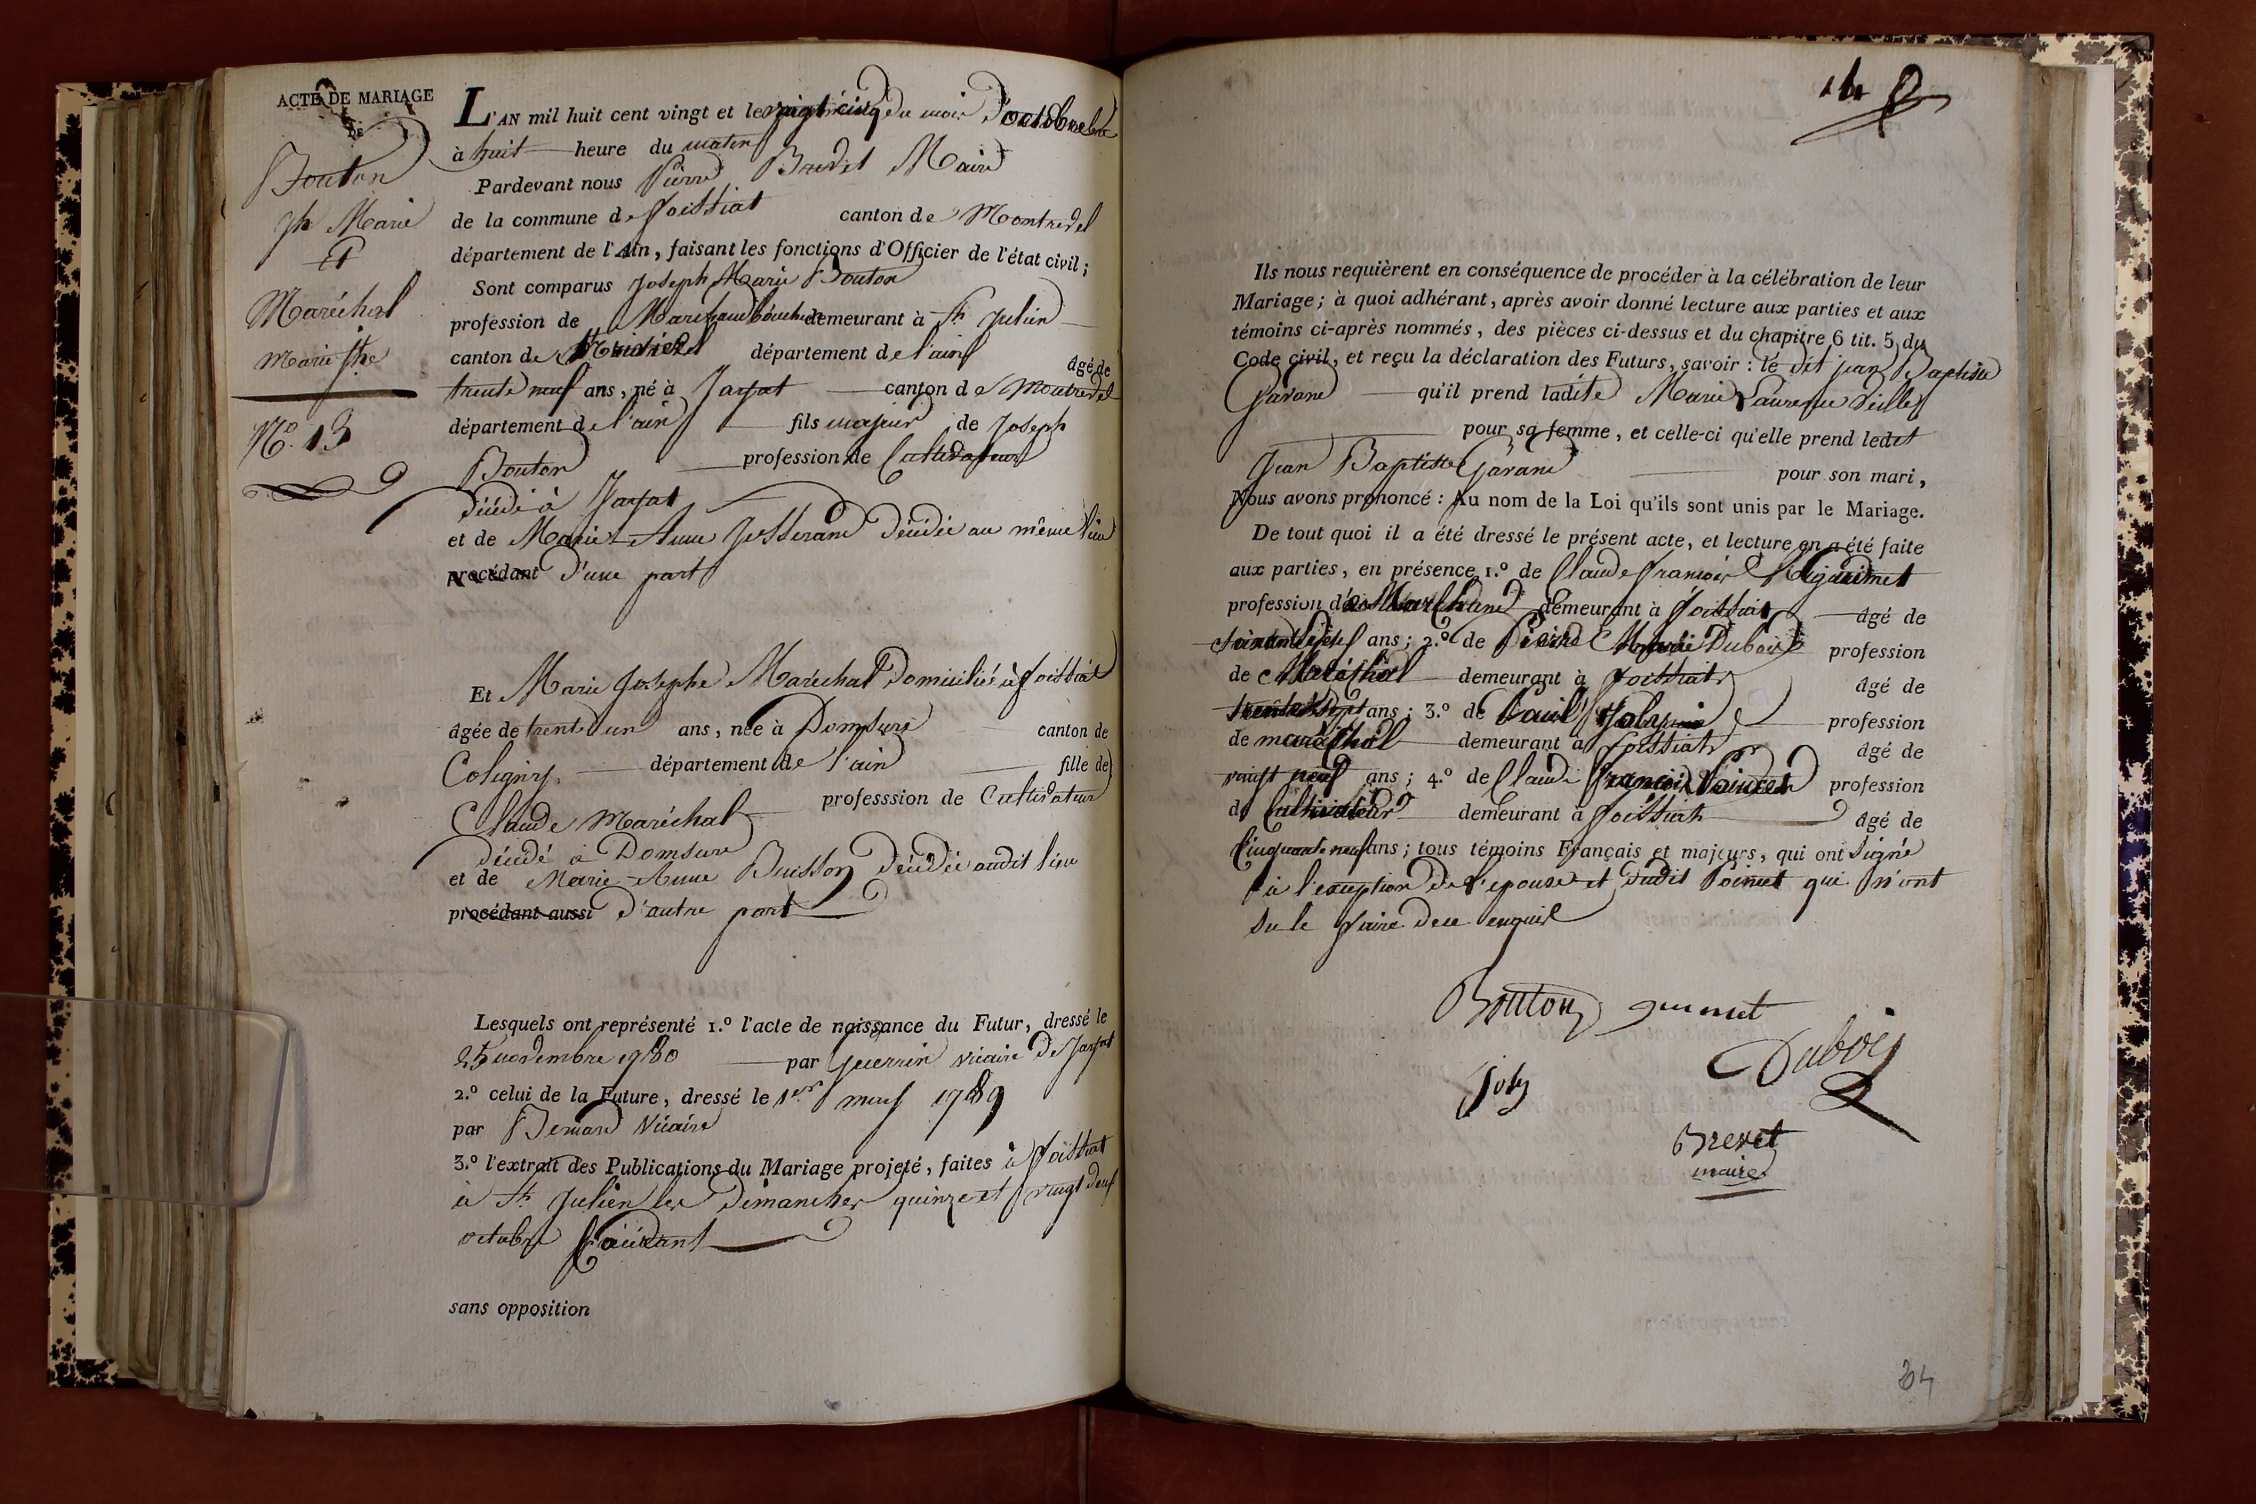 ACTE DE MARIAGE
DE
Bouton
Jh Marie
Et
Maréchal
Marie Jphe
No. 13
L'AN mil huit cent vingt et le vingt cinq du mois d'octobre
à huit heure du matin
Pardevant nous Pierre Brevet Maire
de la commune de foissiat canton de Montrevel
département de l'Ain, faisant les fonctions d'Officier de l'état civil;
Sont comparus Joseph Marie Bouton
profession de Marchand demeurant à St Julien
canton de département de l'ain âgé de
trente neuf ans, né à Jayat canton de Montrevel
département de l'ain fils majeur de Joseph
Bouton profession de Cultivateur
décédé à Jayat
et de Marie-Anne Josserand décédée au même lieu
procédant d'une part
Et Marie Josephe Maréchal domiciliée à foissiat
âgée de trente un ans, née à Domsure canton de
Coligny département de l'ain fille de
Claude Maréchal professsion de Cultivateur
décédé à Domsure
et de Marie-Anne Buisson décédée audit lieu
procédant aussi d'autre part
Lesquels ont représenté 1.º l'acte de naissance du Futur, dressé le
25 novembre 1780 par Guerrin vicaire de Jayat
2.º celui de la Future, dressé le 1er mars 1789
par Bernard Vicaire
3.º l'extrait des Publications du Mariage projeté, faites à foissiat
à St Julien les dimanches quinze et vingt deux
octobre
sans opposition
14
Ils nous requièrent en conséquence de procéder à la célébration de leur
Mariage; à quoi adhérant, après avoir donné lecture aux parties et aux
témoins ci-après nommés, des pièces ci-dessus et du chapitre 6 tit. 5 du
Code civil, et reçu la déclaration des Futurs, savoir: le dit jean Baptiste
qu'il prend ladite Marie Laurence
pour sa femme, et celle-ci qu'elle prend ledit
Jean Baptiste pour son mari,
Nous avons prononcé: Au nom de la Loi qu'ils sont unis par le Mariage.
De tout quoi il a été dressé le présent acte, et lecture en a été faite
aux parties, en présence 1.º de Claude françois
profession de Marchand demeurant à foissiat âgé de
ans; 2.º de Pierre Marie Dubois profession
de Maréchal demeurant à foissiat âgé de
trente sept ans; 3.º de Joly profession
de maréchal demeurant à foissiat âgé de
vingt neuf ans; 4.º de Claude françois Poincet profession
de Cultivateur demeurant à foissiat âgé de
Cinquante neuf ans; tous témoins Français et majeurs, qui ont signé
à l'exception de l'epouse et dudit Poincet qui n'ont
su le faire de ce enquis
Bouton guionet
Dubois
Joly
Brevet
maire
34